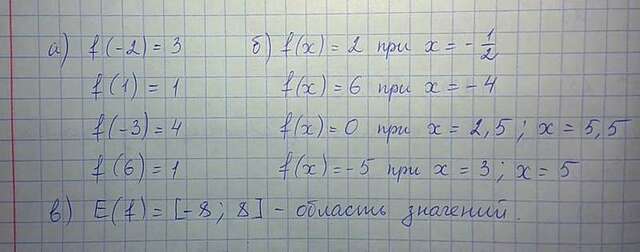 а) f(-2) = 3 б) f(x) = 2 при x = -1/2
f(1) = 1 f(x) = 6 при x = -4
f(-3) = 4 f(x) = 0 при x = 2,5 ; x = 5,5
f(6) = 1 f(x) = -5 при x = 3 ; x = 5
в) E(f) = [-8 ; 8] - область значений.